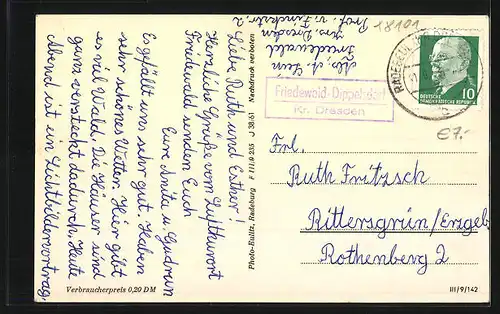 Liebe Ruth und Esther!
Herzliche Grüße vom Luftkurort
Friedewald senden Euch
Eure Anita u. Gudrun
Es gefällt uns sehr gut. Haben
sehr schönes Wetter. Hier gibt
es viel Wald. Die Häuser sind
ganz versteckt dadurch. Heute
Abend ist ein Lichtbildervortrag.
Verbraucherpreis 0,20 DM
Photo-Kulitz, Radeburg F 111/9 235 J 38/61 Nachdruck verboten
Abs. A.
Friedewald
Krs. Dresden
Prof. v. Finckstr. 2
18101
Friedewald-Dippelsdorf
Kr. Dresden
RADEBEUL
10
DEUTSCHE
DEMOKRATISCHE REPUBLIK
b
€7.-
Frl.
Ruth Fritzsch
Rittersgrün/Erzgeb
Rothenberg 2
III/9/142